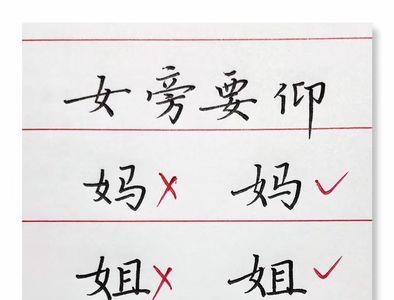 女旁要仰
妈 妈
姐 姐